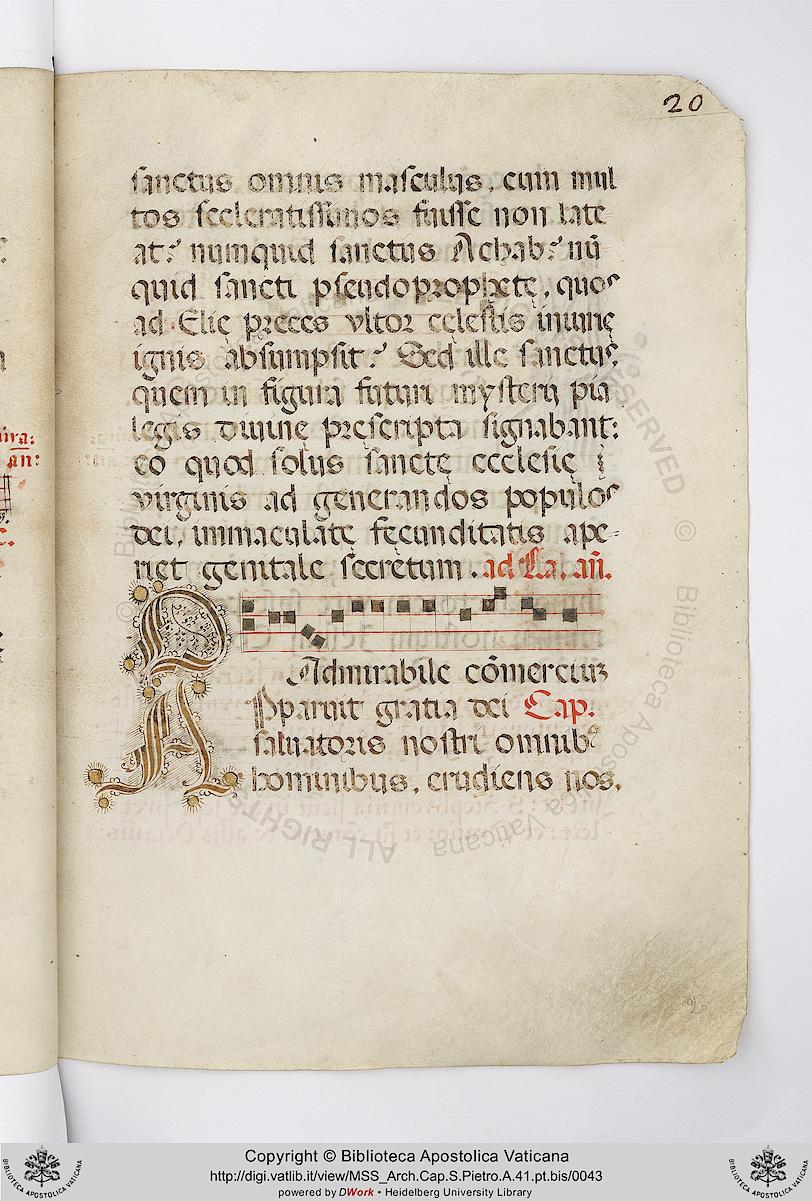 20
sanctus omnis masculus, cum mul
tos sceleratissimos fuisse non late
at? numquid sanctus Achab? nū
quid sancti pseudoprophetę, quos
ad Elię preces vltor celestis inuirę
ignis absumpsit? Sed ille sanctus,
quem in figura futuri mysterij pia
legis diuinę prescripta signabant:
eo quod solus sanctę ecclesię
virginis ad generandos populos
dei, immaculatę fęcunditatis ape-
riet genitale secretum. ad La. añ.
O Admirabile cōmercium
Apparuit gratia dei Cap.
saluatoris nostri omnib9
hominibus, erudiens nos,
Copyright © Biblioteca Apostolica Vaticana
http://digi.vatlib.it/view/MSS_Arch.Cap.S.Pietro.A.41.pt.bis/0043
powered by DWork • Heidelberg University Library